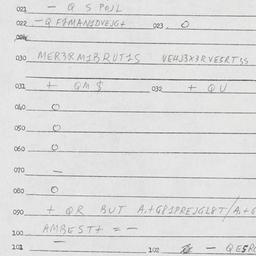 021 - Q S POJL
022 - Q F2MAN1DVEJG+ 023. O
030 MER3RM1BRUT1S VEHJ3X3RVESRT3S
031 + QM $ 032 + QU
040 O
050 O
060 O
070 -
080 O
090 + QR BUT A,+G81PREJGL8T/A,+G
100 AMBEST+ = -
101 - 102 - QESR